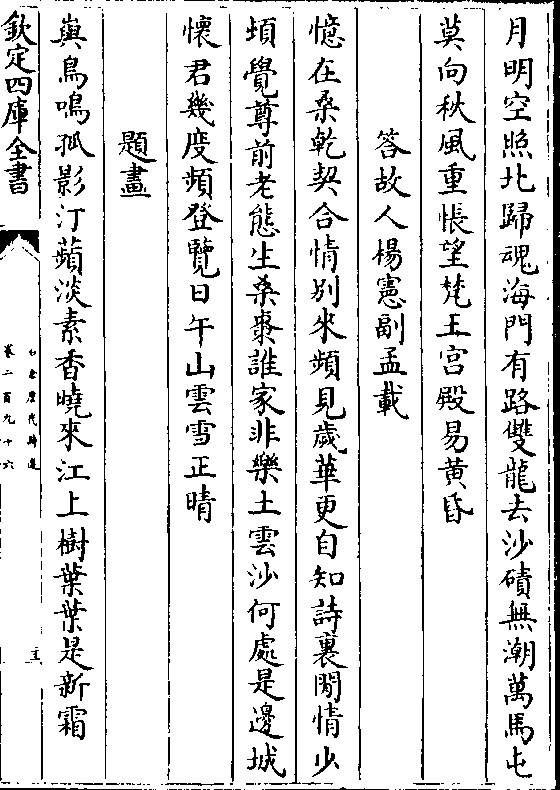 月明空照北歸魂海門有路雙龍去沙磧無潮萬馬屯
莫向秋風重悵望梵王宮殿易黃昏
答故人楊憲副孟載
憶在桑乾契合情別來頻見歲華更自知詩裏閒情少
頓覺尊前老態生桑棗誰家非樂土雲沙何處是邊城
懷君幾度頻登覽日午山雲雪正晴
題畫
嶼鳥鳴孤影汀蘋淡素香曉來江上樹葉葉是新霜
欽定四庫全書
卷二百九十六